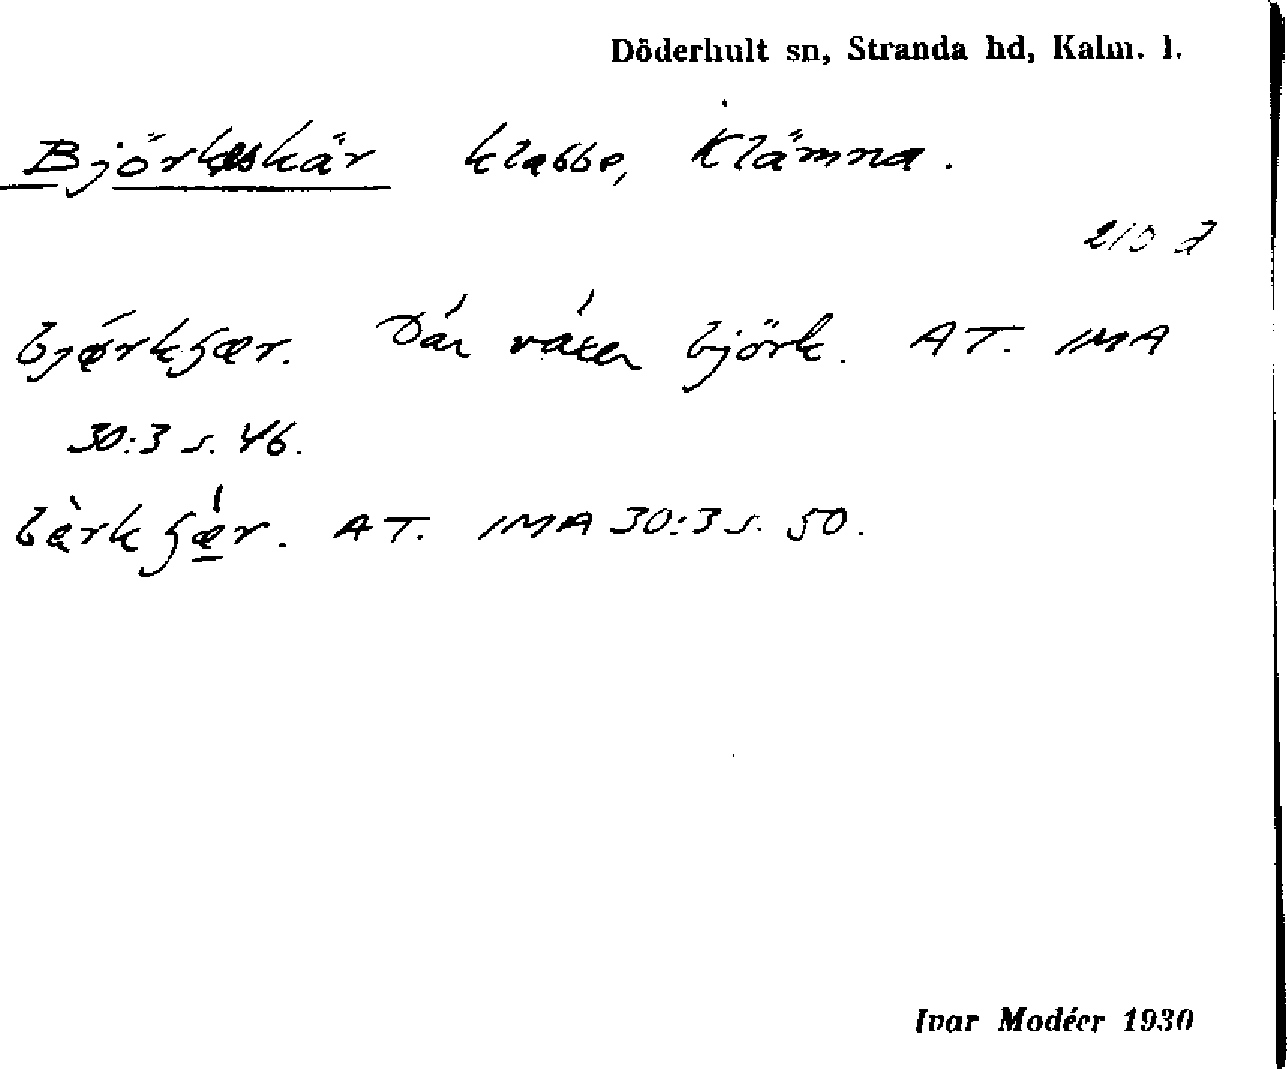 Döderhult sn, Stranda hd, Kalm. l.
Björkskär klabbe, Klämna.
210 d
bjørkʃær. Där växer björk. AT. IMA
30:3 s. 46.
bærkʃær. AT. IMA 30:3 s. 50.
Ivar Modéer 1930